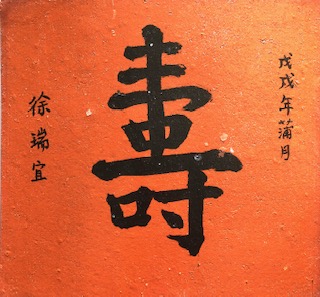 戊戌年蒲月
壽
徐瑞宜